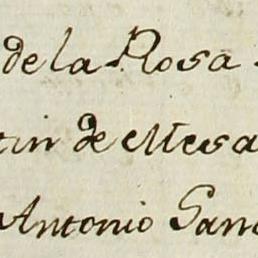 de la Rosa
tin de Mesa
Antonio San